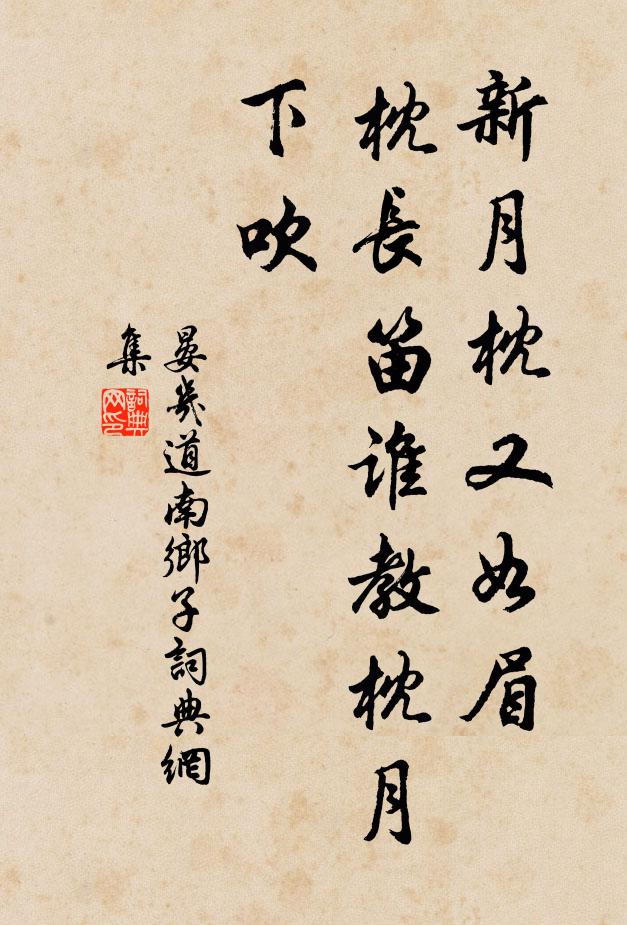 新月枕又如眉
枕長笛誰教枕月
下吹
晏幾道南鄉子詞典網
集
詞典
网印